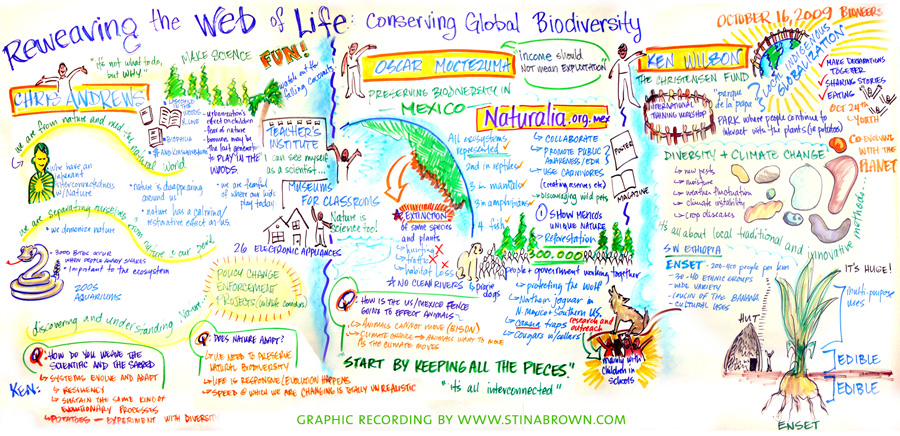 Reweaving the Web of Life: Conserving Global Biodiversity
OCTOBER 16, 2009 BIONEERS
CHRIS ANDREWS
"it's not what to do,
but why"
MAKE SCIENCE
FUN!
watch out for
we are from nature and need the
natural world
we have an
inherent
interconnectedness
w/Nature
BIOPHILIA
• fear of nature
TO PLAY IN THE
WOODS.
• nature is disappearing
around us
• we are fearful
of where our kids
play today
• nature has a calming/
restorative effect on us.
TEACHER'S
INSTITUTE
I can see myself
as a scientist...
MUSEUMS
FOR CLASSROOMS
Nature is
science too!
26 ELECTRONIC APPLIANCES
we are separating ourselves
from nature is our peril
• we demonize nature
3000 BITES OCCUR
WHEN PEOPLE
• important to the ecosystem
2005
AQUARIUMS
POLICY CHANGE
ENFORCEMENT
PROJECTS (wildlife corridors)
discovering and understanding Nature
Q: HOW DO YOU WEAVE THE
SCIENTIFIC AND THE SACRED
KEN:
↳ SYSTEMS EVOLVE AND ADAPT
↳ RESILIENCY
↳ SUSTAIN THE SAME KIND OF
EVOLUTIONARY PROCESSES
↳ POTATOES - EXPERIMENT WITH DIVERSITY
Q: DOES NATURE ADAPT?
↳ WE NEED TO PRESERVE
NATURAL BIODIVERSITY
↳ LIFE IS RESPONSIVE/EVOLUTION HAPPENS
↳ SPEED @ WHICH WE ARE CHANGING IS REALLY UNREALISTIC
OSCAR MOCTEZUMA
income should
Not mean EXPLOITATION"
PRESERVING BIODIVERSITY IN
MEXICO
Naturalia.org.mx
All ecosystems
represented
2nd in reptiles
3 in mammals
in amphibians
4 fish
↳ COLLABORATE
↳ PROMOTE PUBLIC
AWARENESS/EDU
↳ USE CARNIVORES
(creating reserves etc)
↳ Discouraging wild pets
POSTER
MAGAZINE
① SHOW MEXICO'S
UNIQUE NATURE
↳ Reforestation
300,000
people + government working together
* EXTINCTION
of some species
and plants
↳ hunting
↳ traffic
↳ habitat loss
↳ NO CLEAN RIVERS
prairie
dogs
↳ protecting the wolf
↳ Northern jaguar in
N. Mexico + Southern US.
↳ camera traps
research and
outreach
↳ Cougars w/collars
mainly with
children in
schools
Q: HOW IS THE US/MEXICO FENCE
GOING TO EFFECT ANIMALS?
↳ ANIMALS CANNOT MOVE (BISON)
↳ CLIMATE CHANGE → ANIMALS WANT TO MOVE
AS THE CLIMATE MOVES
START BY KEEPING ALL THE PIECES."
"it's all interconnected"
KEN WILSON
THE CHRISTENSEN FUND
LOCAL INDIGENOUS
GLOBALIZATION
✓ MAKE DECLARATIONS
TOGETHER
✓ SHARING STORIES
✓ EATING
OCT 24th
INTERNATIONAL
TRAINING WORKSHOP
parque
de la papa
PARK where people continue to
interact with the plants (ie potatoes)
CO-EVOLVING
WITH THE
PLANET
DIVERSITY + CLIMATE CHANGE
↳ new pests
↳ moisture
↳ weather fluctuation
↳ climate instability
↳ crop diseases
it's all about local traditional and innovative methods...
SW ETHIOPIA
ENSET
- 30-40 ETHNIC GROUPS
- WIDE VARIETY
- COUSIN OF THE BANANA
- CULTURAL USES
HUT
IT'S HUGE!
multi-purpose
uses
EDIBLE
EDIBLE
ENSET
GRAPHIC RECORDING BY WWW.STINABROWN.COM